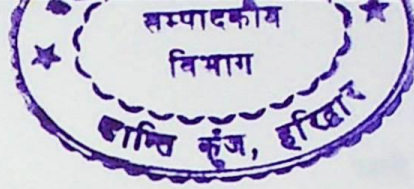 सम्पादकीय
विभाग
शान्ति कुंज, हरिद्वार